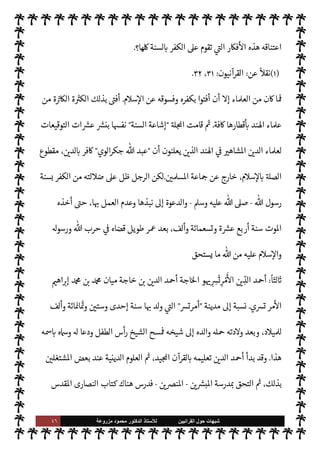 اعتناقه هذه الأفكار التي تقوم على الكفر بالسنة كلها؟.
(١)نقلاً عن: القرآنيون: ٣١، ٣٢.
فما كان من العلماء إلا أن أفتوا بكفره وفسوقه عن الإسلام. أفتى بذلك الكثرة الكاثرة من
علماء الهند بأقطارها كافة. ثم قامت المجلة "إشاعة السنة" نفسها بنشر عشرات التوقيعات
لعلماء الدين المشاهير في الهند الذين يعلنون أن "عبد الله جكرالوي" كافر بالدين، مقطوع
الصلة بالإسلام، خارج عن جماعة المسلمين.لكن الرجل ظل على ضلالته من الكفر بسنة
رسول الله - صلى الله عليه وسلم - والدعوة إلى نبذها وعدم العمل بها، حتى أخذه
الموت سنة أربع عشرة وتسعمائة وألف، بعد عمر طويل قضاه في حرب الله ورسوله
والإسلام عليه من الله ما يستحق
ثالثاً: أحمد الدِّين الأَمْرِتْسَرِيهو الخاجة أحمد الدين بن خاجة ميان محمد بن محمد إبراهيم
الأمر تسري. نسبة إلى مدينة "أمرتسر" التي ولد بها سنة إحدى وستين وثمانمائة وألف
للميلاد، وبعد ولادته حمله والده إلى شيخه فمسح الشيخ رأس الطفل ودعا له وسماه باسمه
هذا. وقد بدأ أحمد الدين تعليمه بالقرآن المجيد، ثم العلوم الدينية عند بعض المشتغلين
بذلك، ثم التحق بمدرسة المبشرين - المنصرين - فدرس هناك كتاب النصارى المقدس
٤٦ شبهات حول القرآنيين للأستاذ الدكتور محمود مزروعة